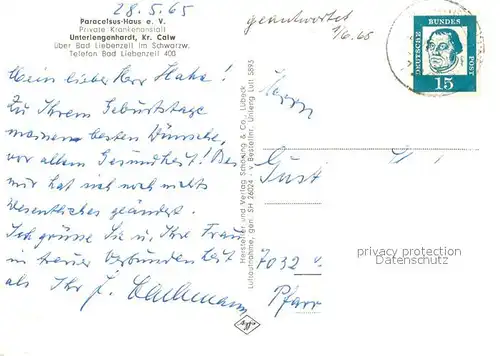 28.5.65
Paracelsus-Haus e. V.
Private Krankenanstalt
Unterlengenhardt, Kr. Calw
über Bad Liebenzell im Schwarzw.
Telefon Bad Liebenzell 400
geantwortet
1/6.65
DEUTSCHE BUNDESPOST
15
Mein lieber Herr Hahn!
Zu Ihrem Geburtstage
meinen besten Wünsche,
vor allem Gesundheit! Bei
mir hat sich noch nichts
Wesentliches geändert.
Ich grüsse Sie u. Ihre Frau
in treuer Verbundenheit
als Ihr J.
Hersteller und Verlag Schöning & Co., Lübeck
Luftaufnahme, gen. SH 26024 · v. Bestellnr. Unleng Luft 5895
Herrn
Gust
7032
Pfarr
privacy protection
Datenschutz